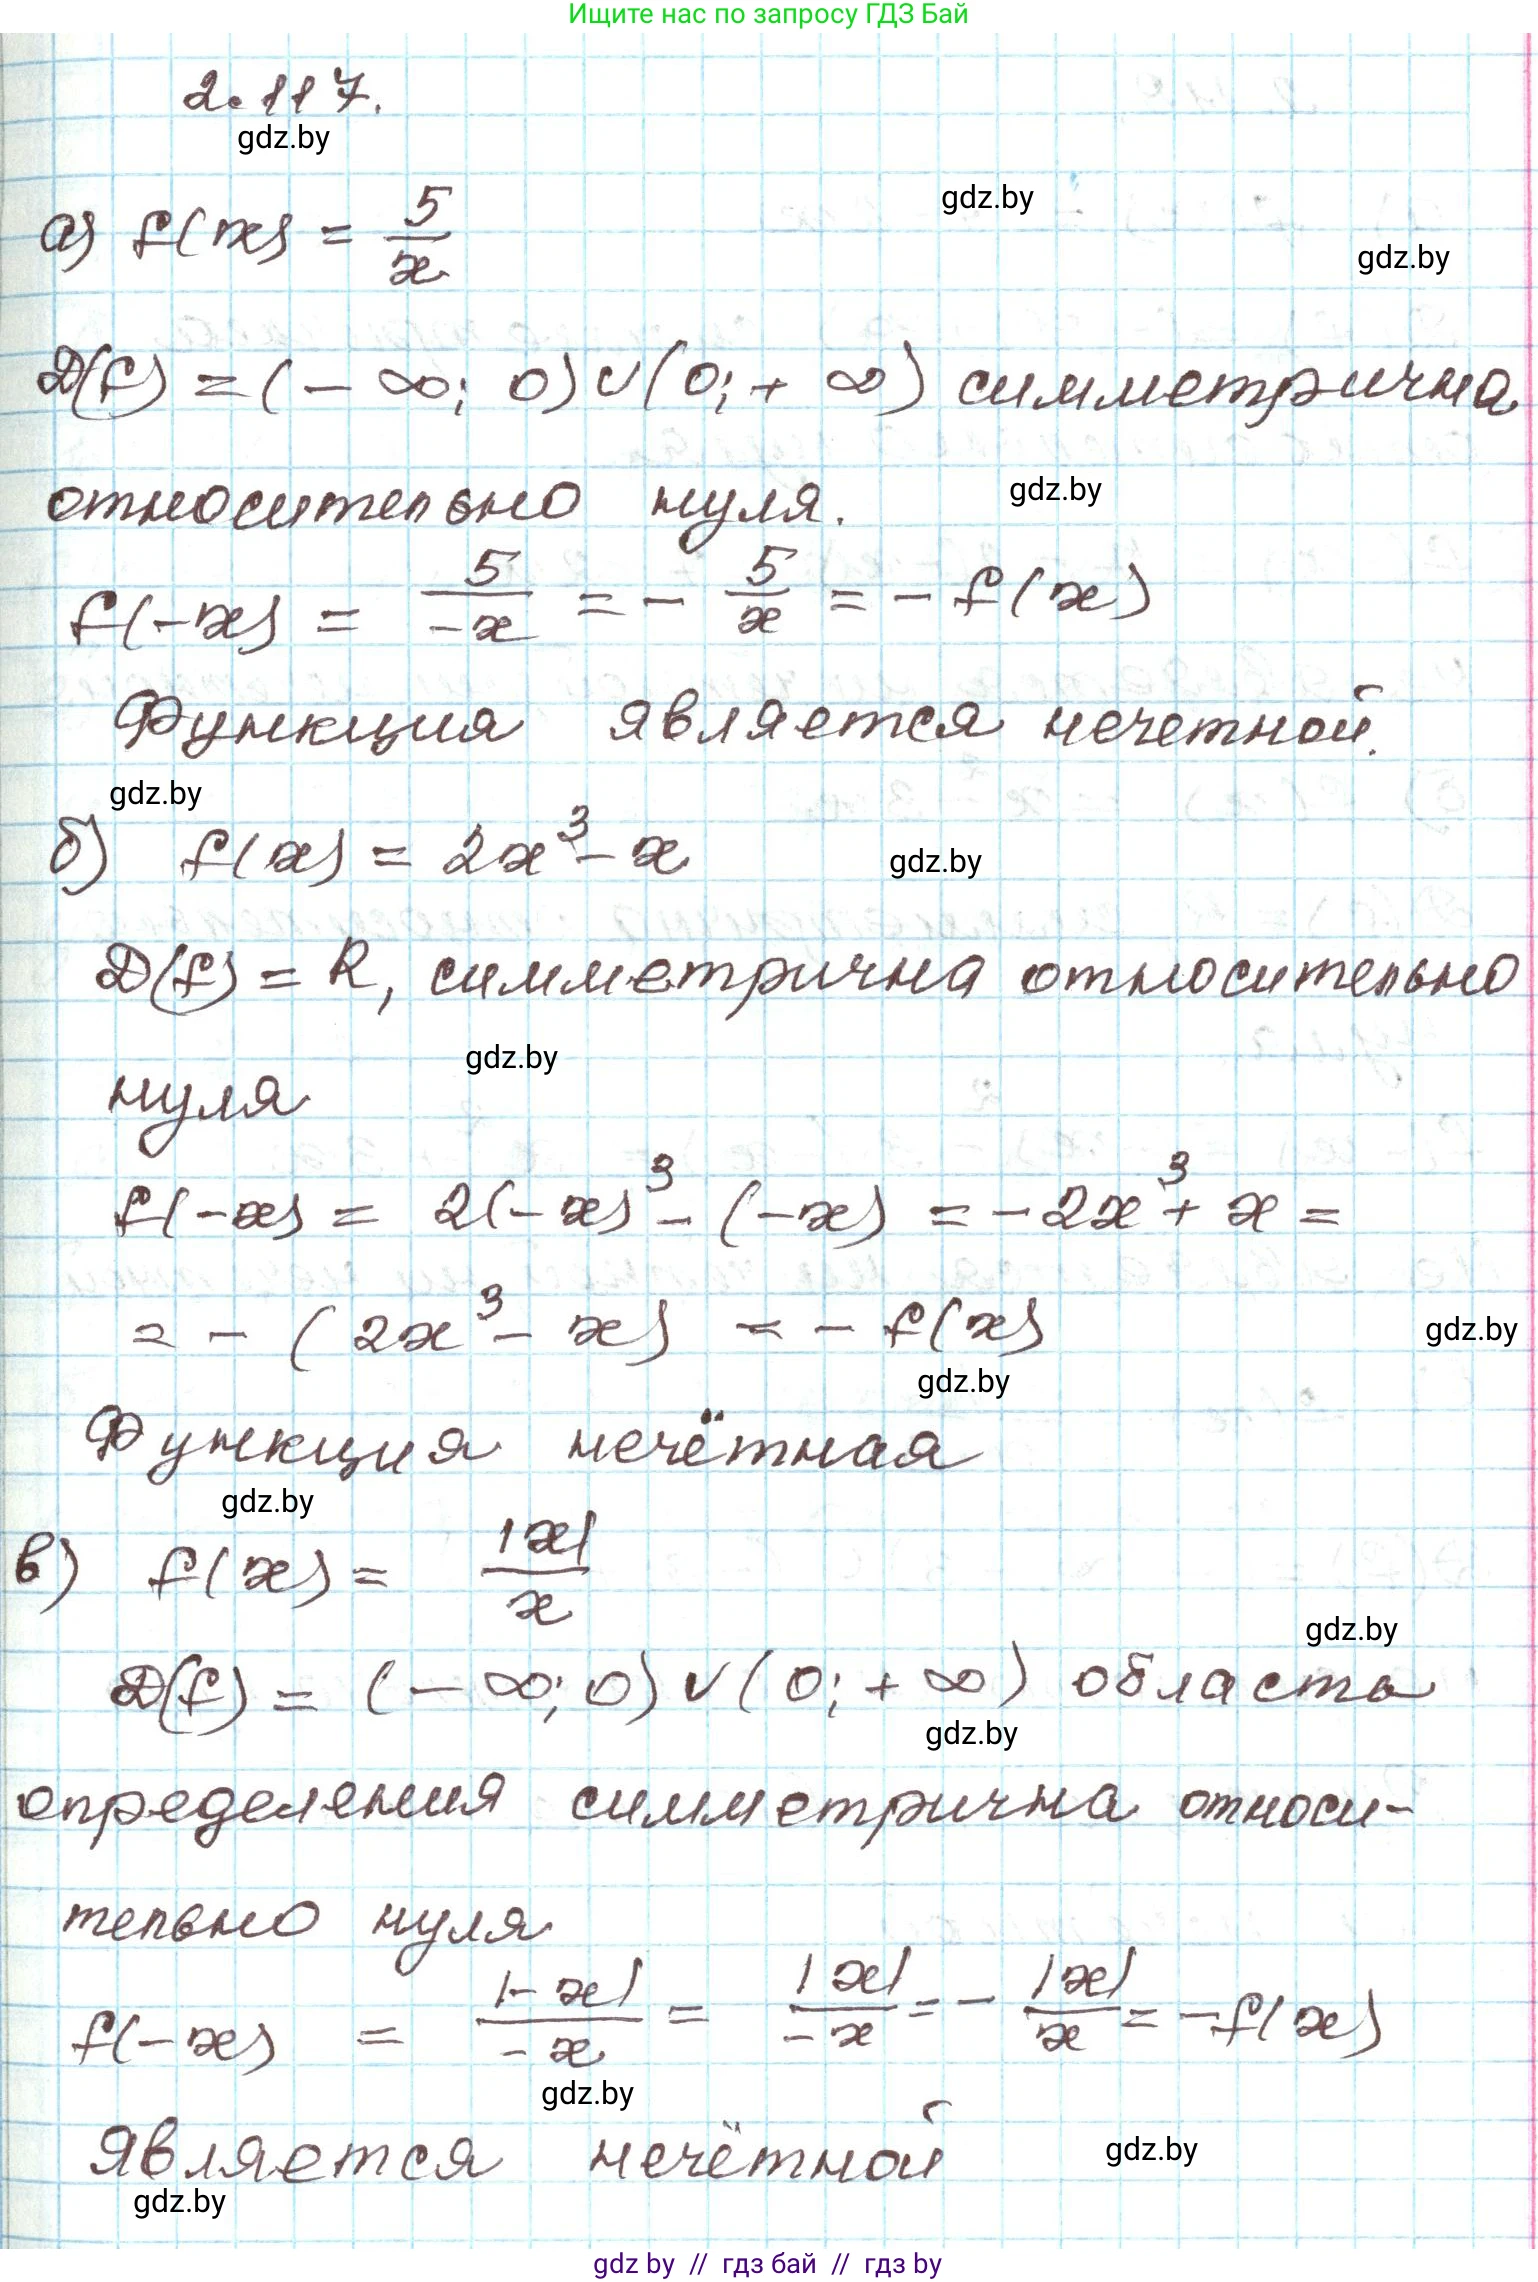 Ищите нас по запросу ГДЗ Бай
2.117.
gdz.by
gdz.by
а) f(x) = 5/x
gdz.by
D(f) = (-∞; 0)∪(0; +∞) симметрична
относительно нуля.
gdz.by
f(-x) = 5/-x = - 5/x = - f(x)
Функция является нечетной.
gdz.by
б) f(x) = 2x³ - x
gdz.by
D(f) = R, симметрична относительно
gdz.by
нуля
f(-x) = 2(-x)³ - (-x) = -2x³ + x =
= - (2x³ - x) = - f(x)
gdz.by
gdz.by
Функция нечётная
gdz.by
в) f(x) = |x|/x
gdz.by
D(f) = (-∞; 0)∪(0; +∞) область
gdz.by
определения симметрична относи-
тельно нуля
f(-x) = |-x|/-x = |x|/-x = - |x|/x = -f(x)
gdz.by
является нечётной
gdz.by
gdz.by
gdz by // гдз бай // гдз by